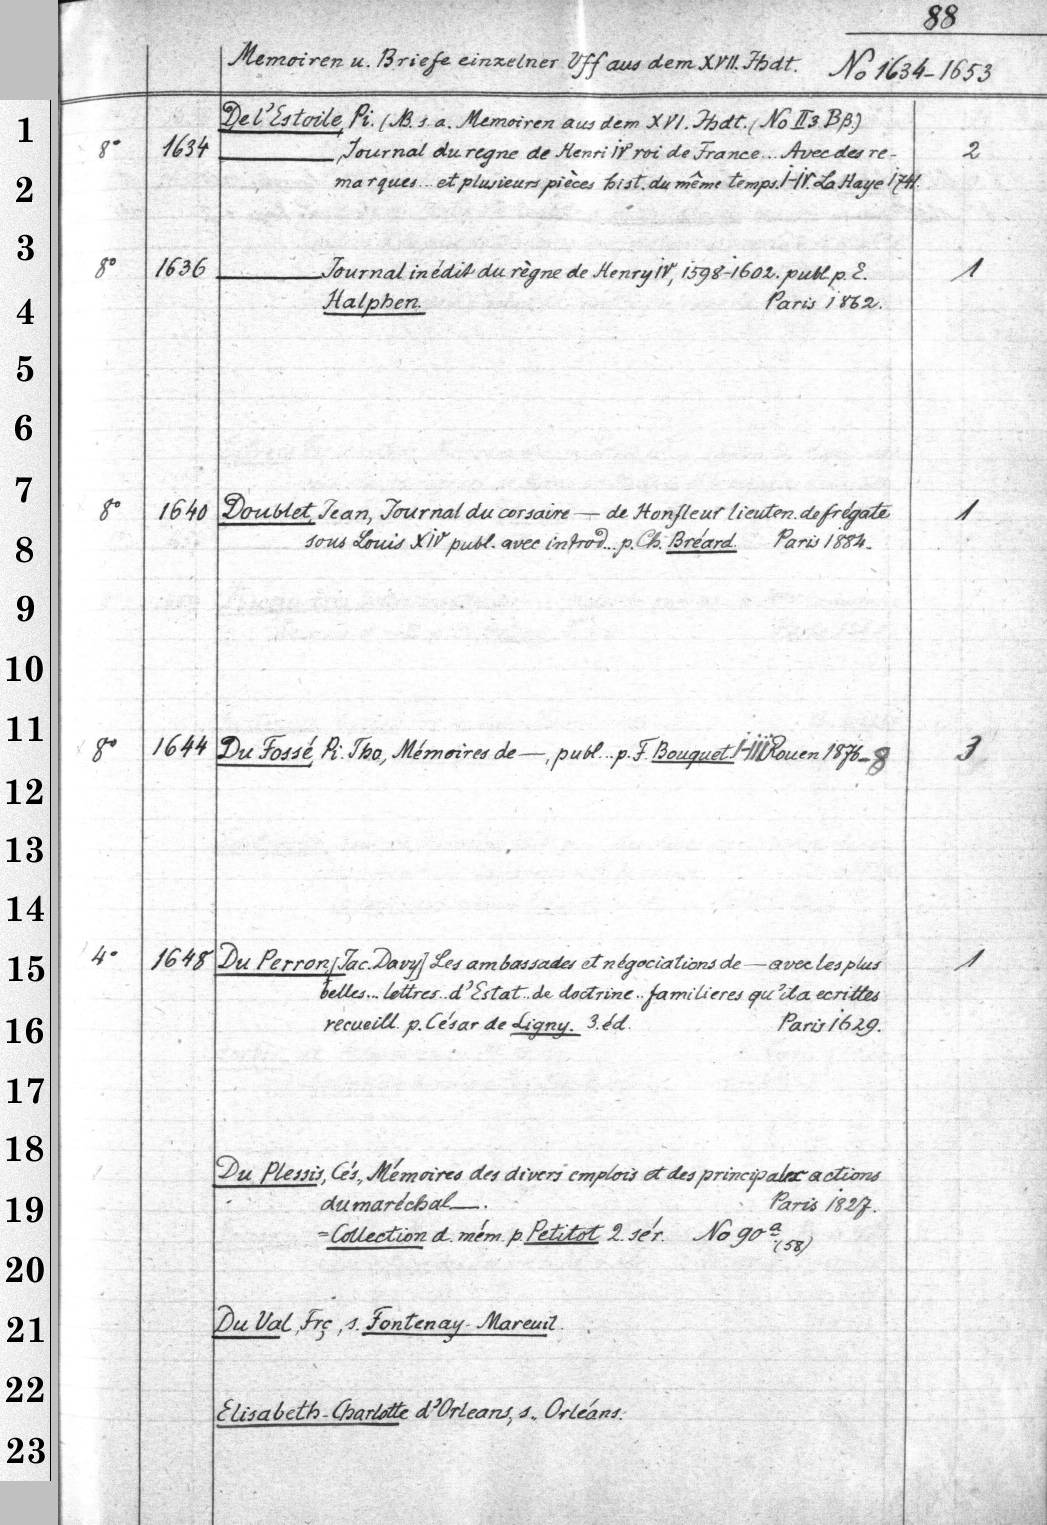 88
Memoiren u. Briefe einzelner Vff aus dem XVII. Jhdt. No 1634-1653
1 De l'Estoile, Pi. (NB. s. a. Memoiren aus dem XVI. Jhdt. (No II 3 Bβ.)
8° 1634 ———, Journal du regne de Henri IV roi de France... Avec des re- 2
2 marques... et plusieurs pièces hist. du même temps. I-IV. La Haye 1741.
3
8° 1636 ——— Journal inédit du règne de Henry IV, 1598-1602. publ. p. E. 1
4 Halphen. Paris 1862.
5
6
7
8° 1640 Doublet, Jean, Journal du corsaire — de Honfleur lieuten. de frégate 1
8 sous Louis XIV publ. avec introd... p. Ch. Bréard. Paris 1884.
9
10
11
8° 1644 Du Fossé, Pi. Tho., Mémoires de —, publ... p. F. Bouquet. I-III Rouen 1876-8 3
12
13
14
15 4° 1648 Du Perron, [Jac. Davy] Les ambassades et négociations de — avec les plus 1
belles... lettres.. d'Estat.. de doctrine.. familieres qu'il a ecrittes
16 recueill. p. César de Ligny. 3. éd. Paris 1629.
17
18
Du Plessis, Cés., Mémoires des divers emplois et des principales actions
19 du maréchal —. Paris 1827.
= Collection d. mém. p. Petitot 2. sér. No 90a (58)
20
21 Du Val, Frç, s. Fontenay-Mareuil.
22
Elisabeth-Charlotte d'Orleans, s. Orléans.
23